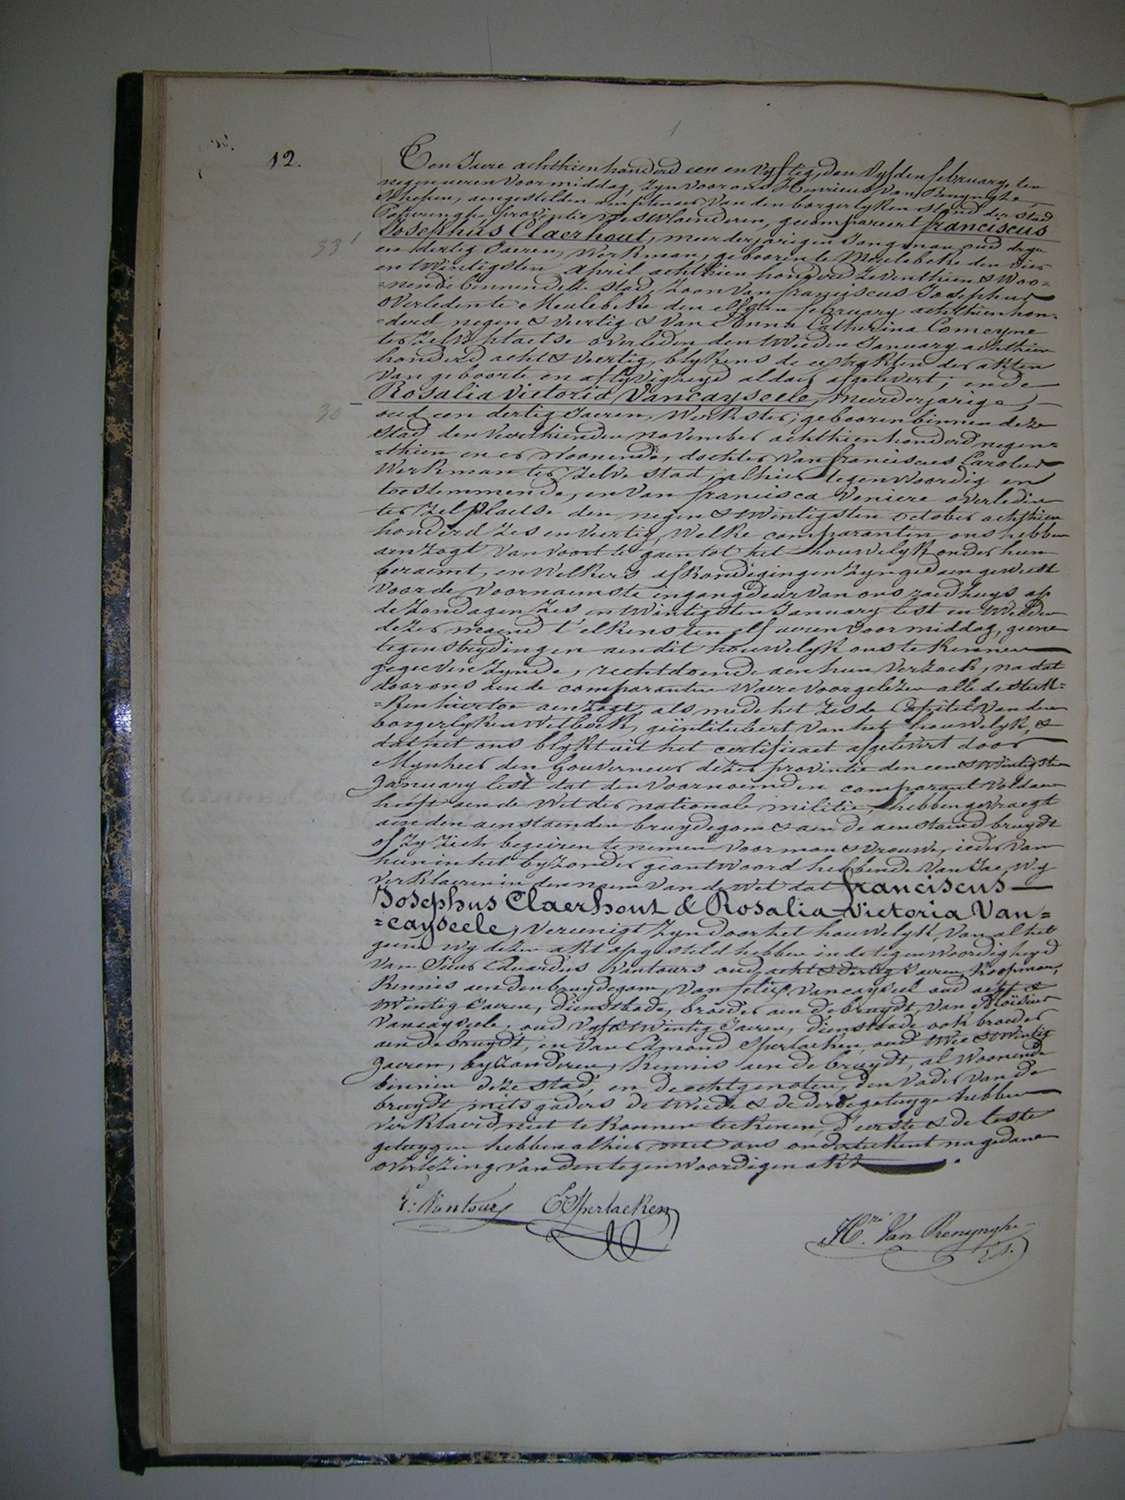 12.
Ten Jaere achthien honderd een en vyftig, den vyfden february, ten
negen ueren voormiddag, zyn voor ons Henricus Van Renynghe,
Schepen, aengestelden ambtenaer van den borgerlyken stand der stad
Poperinghe, provintie Westvlaenderen, gecompareert franciscus
Josephus Claerhout, meerderjarigen Jongman, oud dry
33
en dertig Jaeren, Werkman, gebooren te Meulebeke den vier
en twintigsten april achthien honderd zeventhien & woo-
=nende binnen deze stad, zoon van franciscus Josephus
overleden te Meulebeke den elfsten february achthien hon-
=derd negen & veertig & van Anna Catharina Comeyne
ter zelve plaetse overleden den tweeden January achthien
honderd acht & veertig, blykens de extrakten der akten
van geboorte en aflyvigheyd aldaer afgelevert; ende
Rosalia Victoria Vancayseele, meerderjarige,
30
oud een dertig Jaeren, Werkster, gebooren binnen deze
stad den veerthienden november achthien honderd negen-
=thien en er woonende, dochter van franciscus Carolus
Werkman ter zelve stad, alhier tegenwoordig en
toestemmende, en van francisca Veniere overleden
ter zelf plaetse den negen & twintigsten october achthien
honderd zes en veertig, Welke comparanten ons hebben
aenzogt van voort te gaen tot het houwelyk onder hun
beraemt, en welkers afkondigingen zyn gedaen geweest
voor de voornaemste ingangdeur van ons raedhuys op
de zondagen zes en twintigsten January lest en tweeden
dezer maend t'elkens ten elf ueren voormiddag, geene
tegenstrydingen aen dit houwelyk ons te kennen
gegeven zynde, rechtdoende aen hun verzoek, na dat
door ons aen de comparanten waere voorgelezen alle de stuk-
=ken hier toe aenzogt, als mede het zesde Capitel van den
borgerlyken Wetboek, geïntituleert van het houwelyk, &
dat het ons blykt uit het certificaet afgelevert door
Mynheer den Gouverneur dezer provintie den een & twintigsten
January lest dat den voornoemden comparant voldaen
heeft aen de Wet der nationale militie, hebben gevraegt
aen den aenstaenden bruydegom & aen de aenstaende bruydt
of zy zich begeiren te nemen voor man & vrouwe, ieder van
hun in het byzonder geantwoord hebbende van Jae, wy
verklaeren in den naem van de Wet dat franciscus
Josephus Claerhout & Rosalia Victoria Van=
=cayseele, vereenigt zyn door het houwelyk, van al het
geene wy dezen akt opgesteld hebben in de tegenwoordigheyd
van Sieur Eduardus Vantours oud acht & dertig Jaeren, Koopman,
kennis aen den bruydegom, van felix Vancayseel oud acht &
twintig Jaeren, dienstbode, broeder aen de bruydt, van Aloïsius
Vancayseele, oud vyf & twintig Jaeren, dienstbode ook broeder
aen de bruydt, en van Edmond Sperlaeken, oud twee & twintig
Jaeren, byzonderen, kennis aen de bruydt, al woonende
binnen deze stad, en de echtgenoten, den Vader van de
bruydt mitsgaders de tweede & de derde getuyge hebben
verklaerd niet te konnen teekenen, d'eerste & de leste
getuygen hebben alhier met ons onderteekent na gedaene
overlezing van den tegenwoordigen akt.
E. Vantours ESperlaeken
Hri. Van Renynghe